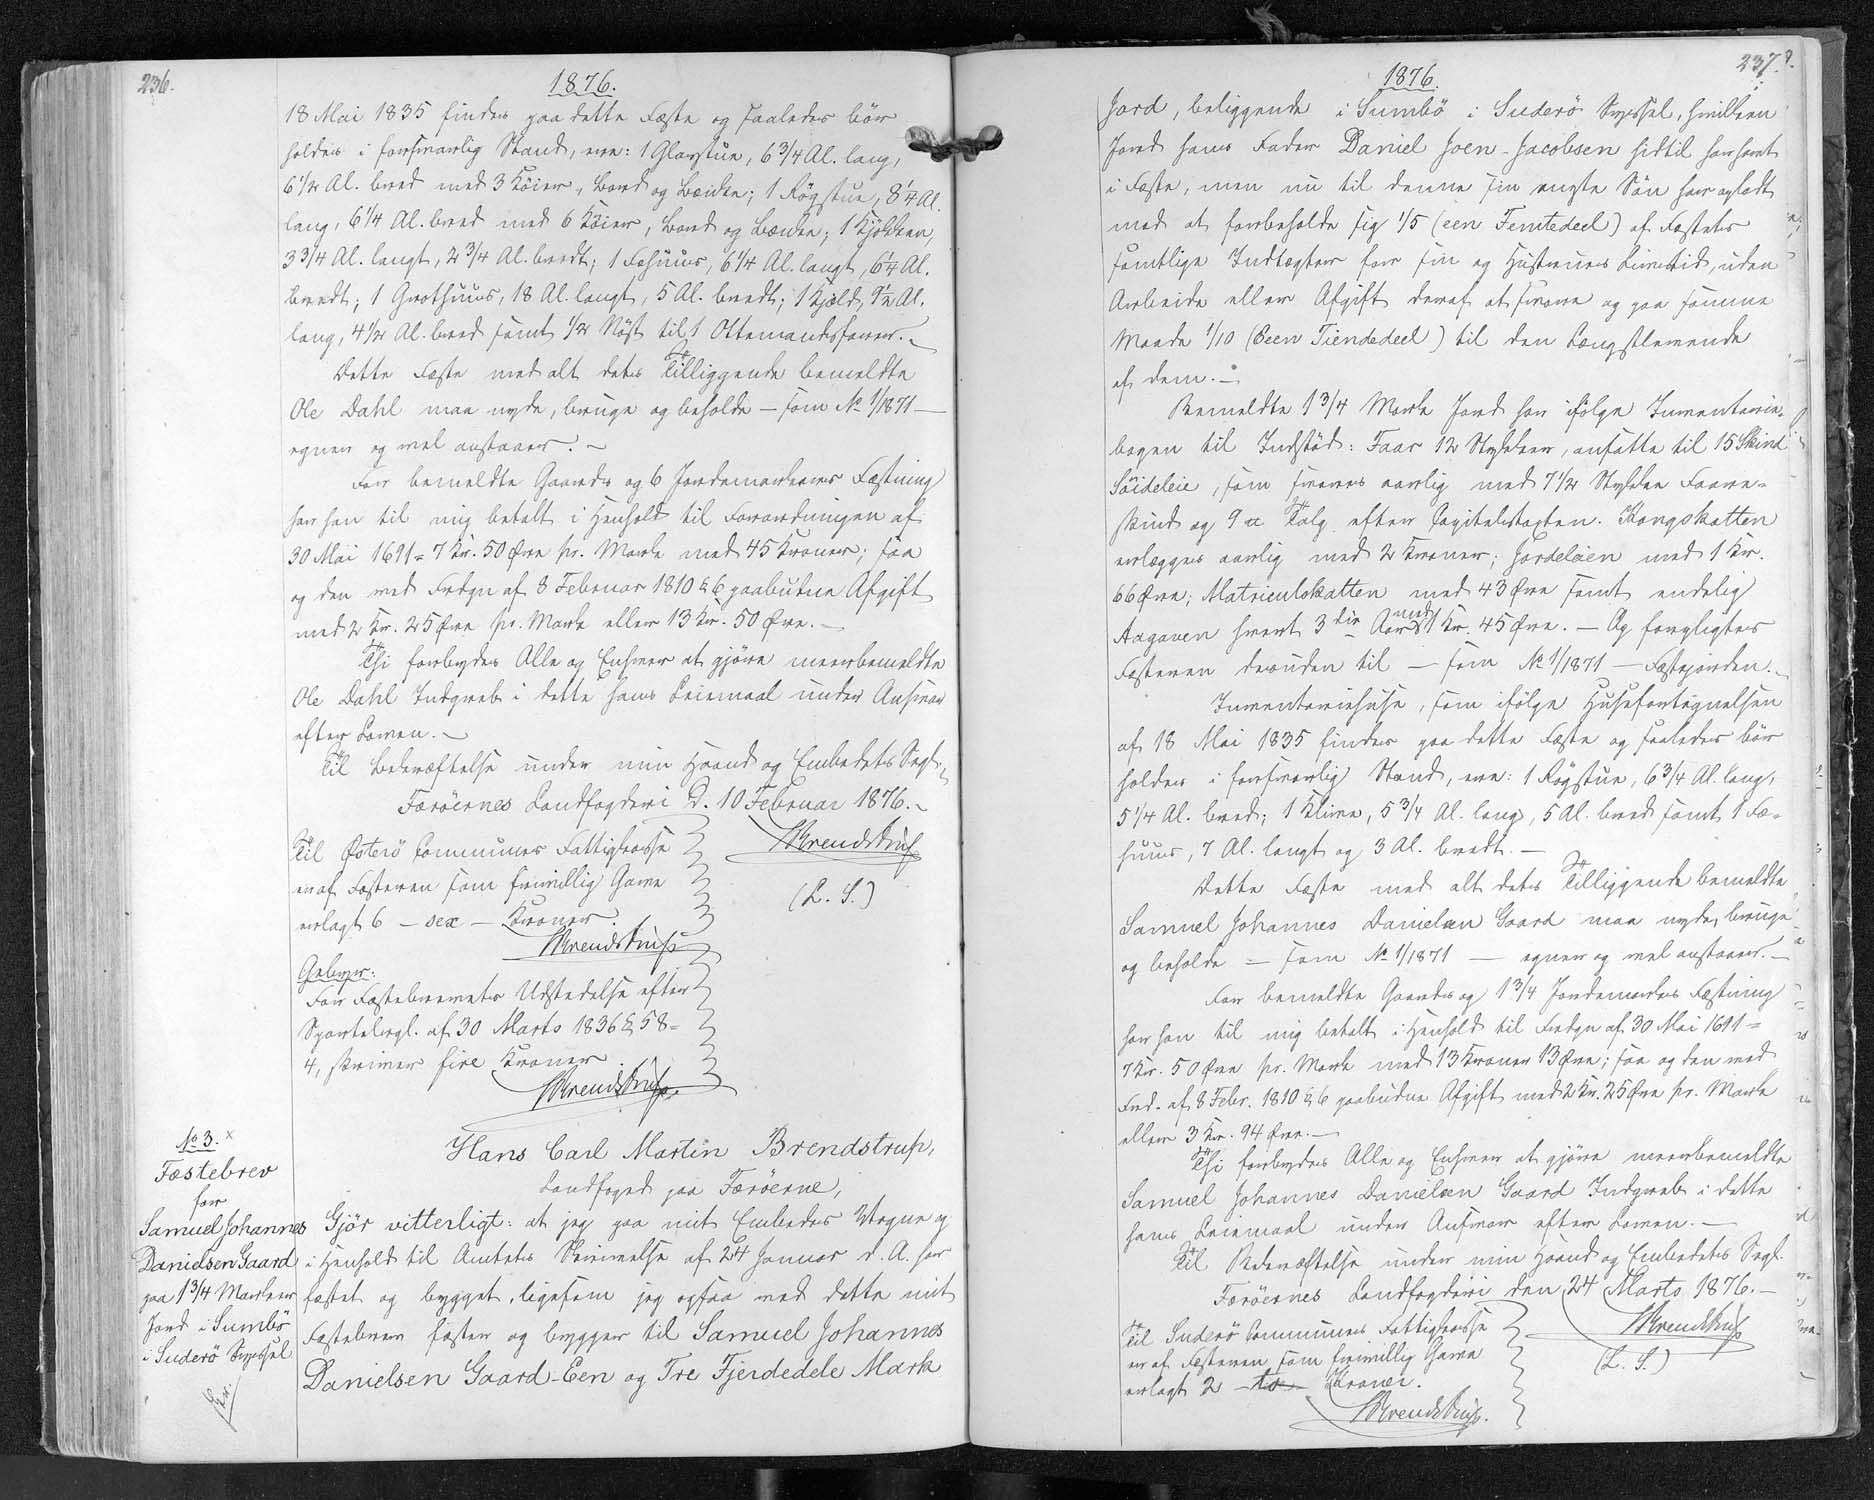 236.
1876.
18 Mai 1835 findes paa dette Fæste og saaledes bør
holdes i forsvarlig Stand, ere: 1 Glarstue, 6 3/4 Al. lang,
6 1/2 Al. bred med 3 Køier, Bord og Bænke; 1 Røgstue, 8 1/4 Al.
lang, 6 1/4 Al. bred med 6 Køier, Bord og Bænke; 1 Kjökken,
3 3/4 Al. langt, 2 3/4 Al. bredt; 1 Fæhuus, 6 1/4 Al. langt, 6 1/4 Al.
bredt; 1 Grothuus, 18 Al. langt, 5 Al. bredt; 1 Kjeld, 9 1/2 Al.
lang, 4 1/2 Al. bred samt 1/2 Nöst til 1 Ottemandsfarer.
Dette Fæste med alt dets Tilliggende bemeldte
Ole Dahl maa nyde, bruge og beholde — som No 1/1871 —
egner og vel anstaaer. —
For bemeldte Gaards og 6 Jordemarkers Fæstning
har han til mig betalt i Henhold til Forordningen af
30 Mai 1691 = 7 Kr. 50 Øre pr. Mark med 45 Kroner; saa
og den ved Frdgn af 8 Februar 1810 § 6 paabudne Afgift
med 2 Kr. 25 Øre pr. Mark eller 13 Kr. 50 Øre. —
Thi forbydes Alle og Enhver at gjøre meerbemeldte
Ole Dahl Indgreb i dette hans Leiemaal under Ansvar
efter Loven. —
Til Bekræftelse under min Haand og Embedets Segl.
Færöernes Landfogderi d. 10 Februar 1876. —
HBrendstrup
(L. S.)
Til Østerö Communes Fattigkasse
er af Fæsteren som frivillig Gave
erlagt 6 — sex — Kroner.
HBrendstrup
Gebyr:
For Fæstebrevets Udstedelse efter
Sportelregl. af 30 Marts 1836 § 58 =
4, skriver fire Kroner.
HBrendstrup.
No 3. x
Fæstebrev
for
Samuel Johannes
Danielsen Gaard
paa 1 3/4 Marker
Jord i Sumbö
i Suderö Syssel
Hans Carl Martin Brendstrup,
Landfoged paa Færöerne,
Gjör vitterligt: at jeg paa mit Embedes Vegne og
i Henhold til Amtets Skrivelse af 24 Januar d. A. har
fæstet og bygget, ligesom jeg ogsaa med dette mit
Fæstebrev fæster og bygger til Samuel Johannes
Danielsen Gaard - Een og Tre Fjerdedele Mark
237.
1876.
Jord, beliggende i Sumbö i Suderö Syssel, hvilken
Jord hans Fader Daniel Joen-Jacobsen hidtil har havt
i Fæste, men nu til denne sin yngste Sön har opladt
med at forbeholde sig 1/5 (een Femtedeel) af Fæstets
samtlige Indtægter for sin og Hustrues Livstid, uden
Arbeide eller Afgift deraf at svare og paa samme
Maade 1/10 (Een Tiendedeel) til den Længstlevende
af dem. —
Bemeldte 1 3/4 Mark Jord har ifølge Inventarie-
bogen til Indstöd: Faar 12 Stykker, ansatte til 15 Skind
Söideleie, som svares aarlig med 7 1/2 Stykke Faare-
skind og 9 ℔ Talg efter Capitelstaxten. Kongskatten
erlægges aarlig med 2 Kroner; Jordeleien med 1 Kr.
66 Øre; Matriculskatten med 43 Øre samt endelig
Aagaven hvert 3die Aar med 1 Kr. 45 Øre. — Og forpligtes
Fæsteren desuden til — som No 1/1871 — Fæstejorden. —
Inventariehuse, som ifølge Husefortegnelsen
af 18 Mai 1835 findes paa dette Fæste og saaledes bør
holdes i forsvarlig Stand, ere: 1 Røgstue, 6 3/4 Al. lang,
5 1/4 Al. bred; 1 Klive, 5 3/4 Al. lang, 5 Al. bred samt 1 Fæ-
huus, 7 Al. langt og 3 Al. bredt. —
Dette Fæste med alt dets Tilliggende bemeldte
Samuel Johannes Danielsen Gaard maa nyde, bruge
og beholde — som No 1/1871 — egner og vel anstaaer. —
For bemeldte Gaards og 1 3/4 Jordemarks Fæstning
har han til mig betalt i Henhold til Frdgn af 30 Mai 1691 =
7 Kr. 50 Øre pr. Mark med 13 Kroner 13 Øre; saa og den ved
Frd. af 8 Febr. 1810 § 6 paabudne Afgift med 2 Kr. 25 Øre pr. Mark
eller 3 Kr. 94 Øre. —
Thi forbydes Alle og Enhver at gjøre meerbemeldte
Samuel Johannes Danielsen Gaard Indgreb i dette
hans Leiemaal under Ansvar efter Loven. —
Til Bekræftelse under min Haand og Embedets Segl.
Færöernes Landfogderi den 24 Marts 1876. —
HBrendstrup
(L. S.)
Til Suderö Communes Fattigkasse
er af Fæsteren som frivillig Gave
erlagt 2 — to — Kroner.
HBrendstrup.